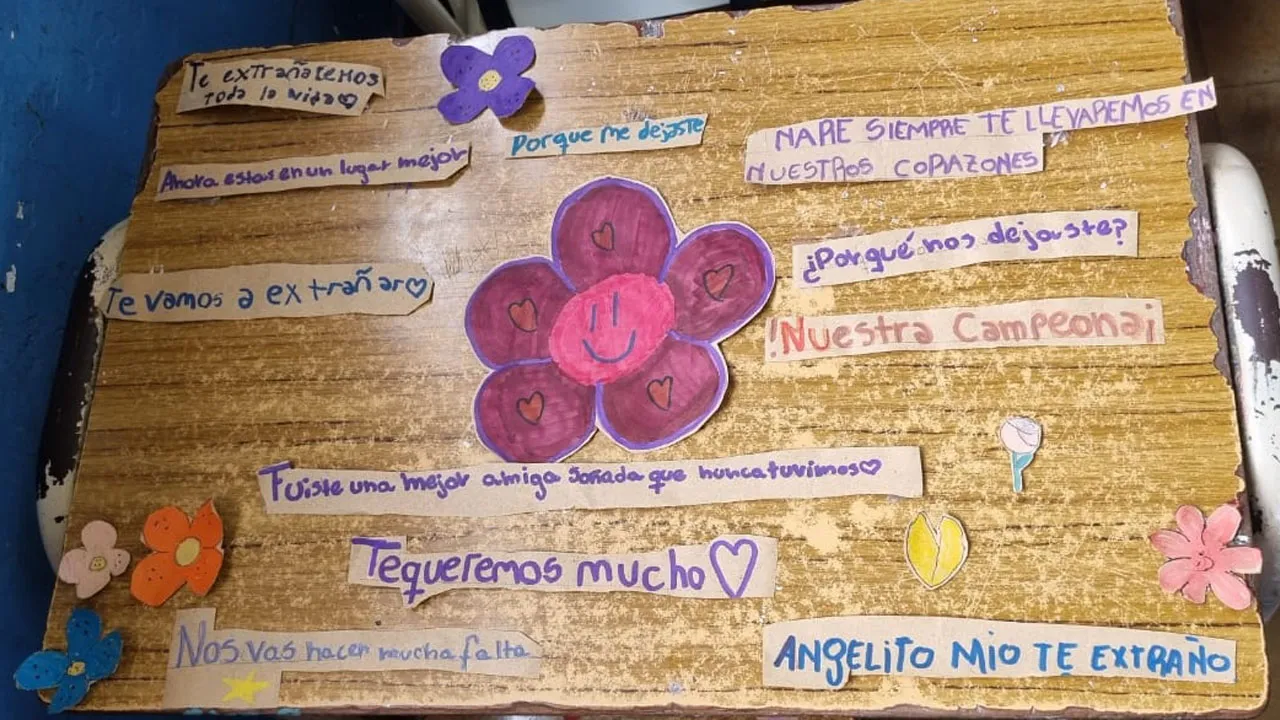 Te extrañaremos
toda la vida
Porque me dejaste
NARE SIEMPRE TE LLEVAREMOS EN
NUESTROS CORAZONES
Ahora estas en un lugar mejor
¿Porqué nos dejaste?
Te vamos a extrañar
!Nuestra Campeona¡
Fuiste una mejor amiga soñada que nunca tuvimos
Te queremos mucho
Nos vas hacer mucha falta
ANgELITO MIO TE EXTRAÑO